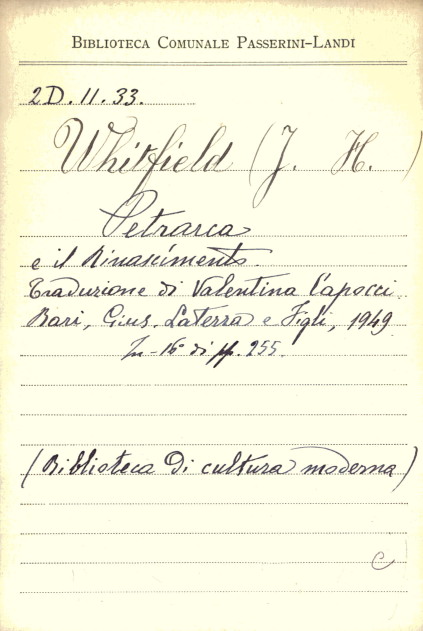 BIBLIOTECA COMUNALE PASSERINI-LANDI
2D. 11. 33.
Whitfield (J. H.)
Petrarca
e il Rinascimento.
Traduzione di Valentina Capocci.
Bari, Gius. Laterza e Figli, 1949
In-16° di pp. 255.
(Biblioteca di cultura moderna)
C